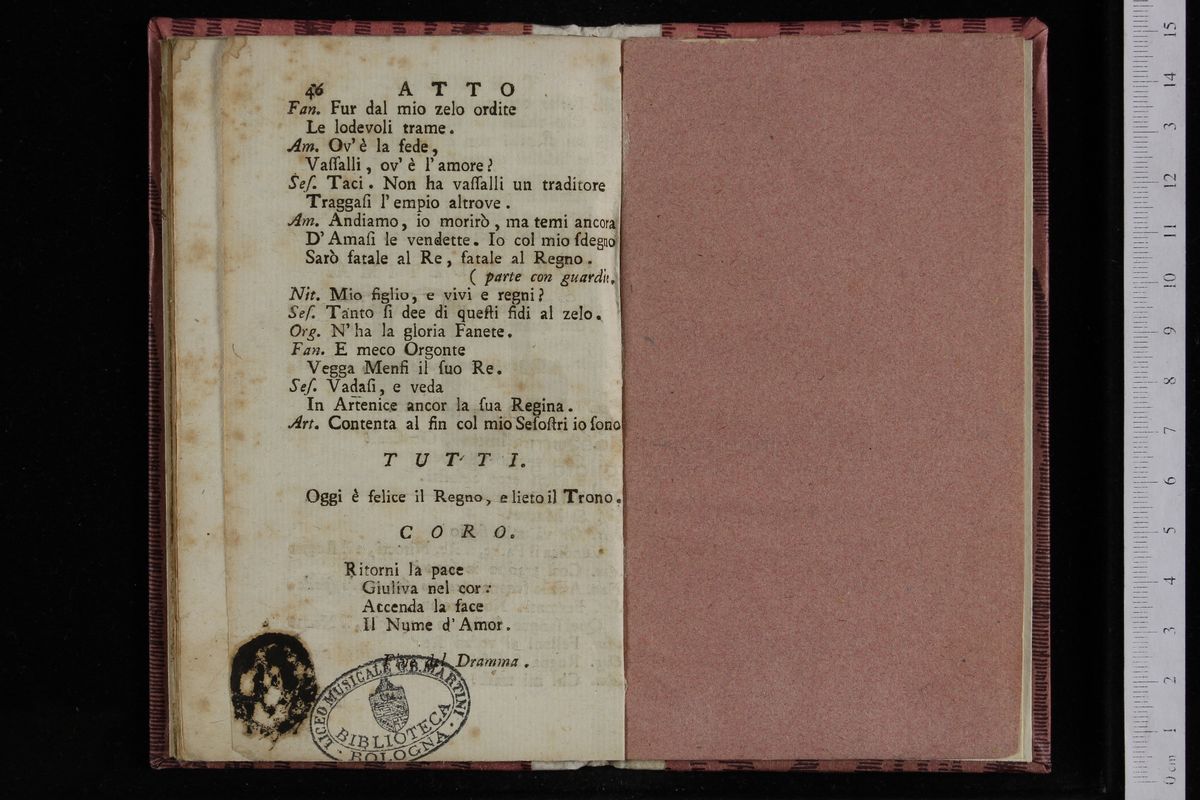 46 ATTO
Fan. Fur dal mio zelo ordite
Le lodevoli trame.
Am. Ov' è la fede,
Vaſſalli, ov' è l'amore?
Seſ. Taci. Non ha vaſſalli un traditore
Traggaſi l'empio altrove.
Am. Andiamo, io morirò, ma temi ancora
D'Amaſi le vendette. Io col mio ſdegno
Sarò fatale al Re, fatale al Regno.
( parte con guardie.
Nit. Mio figlio, e vivi e regni?
Seſ. Tanto ſi dee di queſti fidi al zelo.
Org. N'ha la gloria Fanete.
Fan. E meco Orgonte
Vegga Menfi il ſuo Re.
Seſ. Vadaſi, e veda
In Artenice ancor la ſua Regina.
Art. Contenta al fin col mio Seſoſtri io ſono
TUTTI.
Oggi è felice il Regno, e lieto il Trono.
CORO.
Ritorni la pace
Giuliva nel cor:
Accenda la face
Il Nume d'Amor.
Fine del Dramma.
LICEO MUSICALE G.B. MARTINI
BIBLIOTECA
· BOLOGNA ·
15
14
3
12
11
10
9
8
7
6
5
4
3
2
1
0 cm